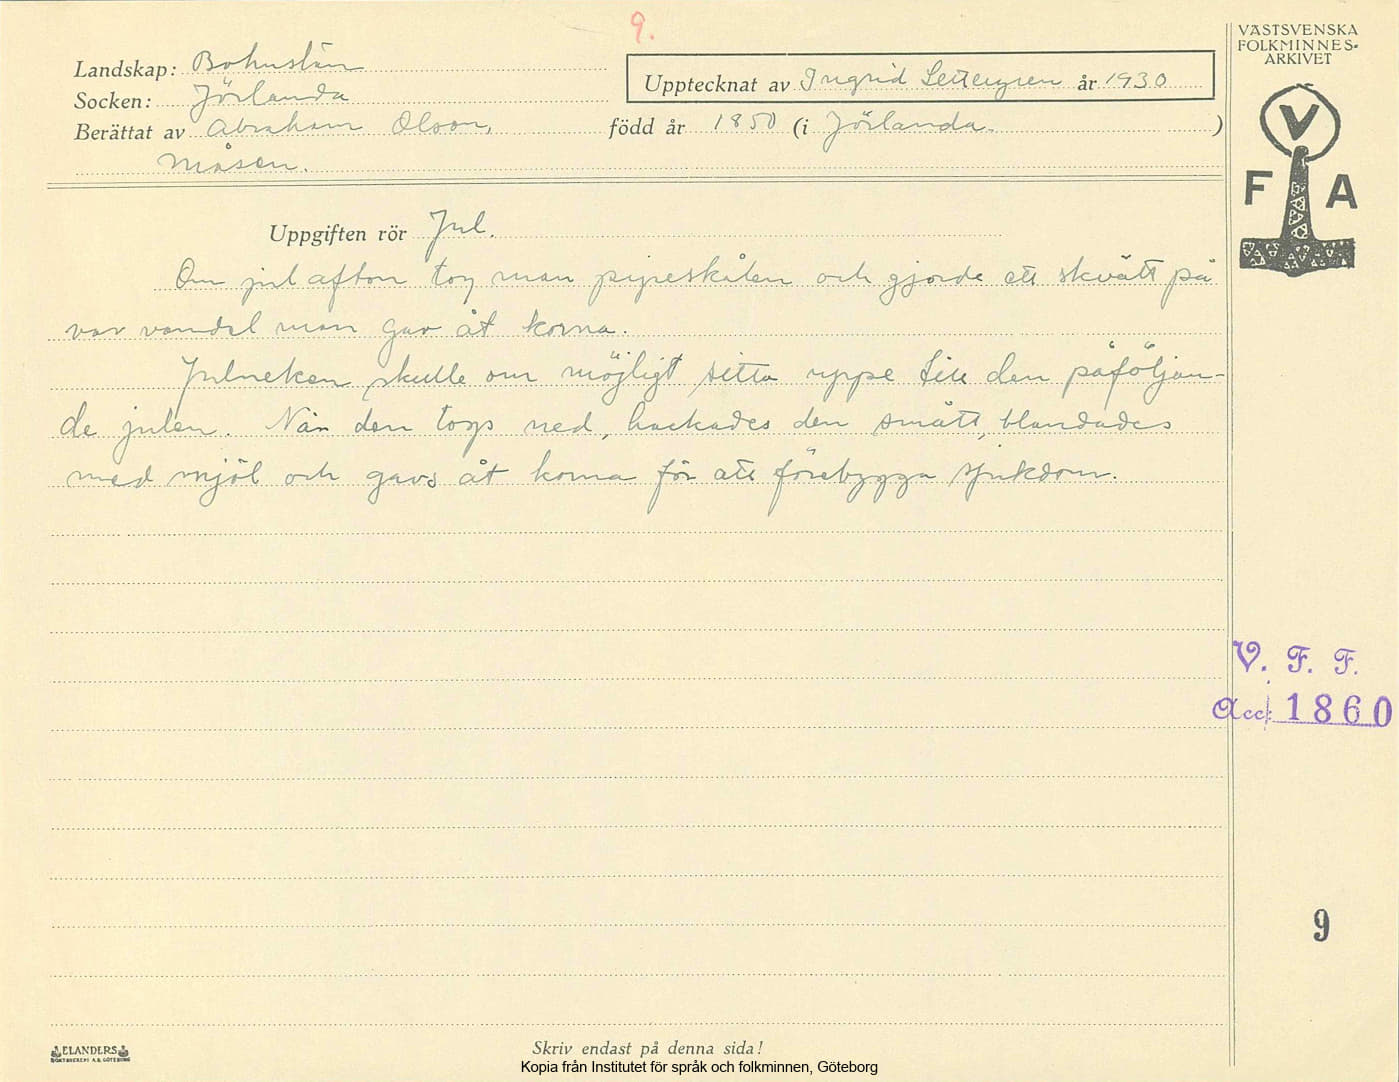 9.
Landskap: Bohuslän
Socken: Jörlanda
Upptecknat av Ingrid Settergren år 1930
Berättat av Abraham Olson, född år 1850 (i Jörlanda. )
Måsen.
VÄSTSVENSKA
FOLKMINNES-
ARKIVET
V
F A
Uppgiften rör Jul.
Om jul afton tog man pipreskålen och gjorde ett skvätt på
var vandel man gav åt korna.
Julneken skulle om möjligt sitta uppe till den påföljan-
de julen. När den togs ned, hackades den smått, blandades
med mjöl och gavs åt korna för att förebygga sjukdom.
V. F. F.
Acc: 1860
9
ELANDERS
BOKTRYCKERI A.B. GÖTEBORG
Skriv endast på denna sida!
Kopia från Institutet för språk och folkminnen, Göteborg